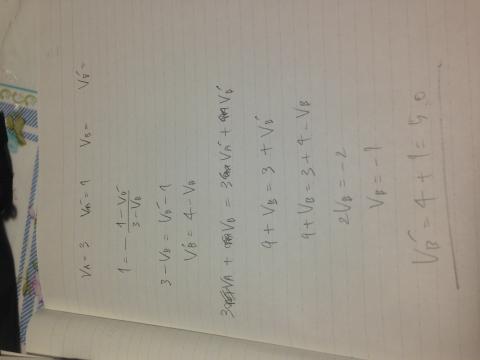 V_A = 3 V_A' = 1 V_B = V_B' =
1 = - (1 - V_B') / (3 - V_B)
3 - V_B = V_B' - 1
V_B' = 4 - V_B
3 V_A + V_B = 3 V_A' + V_B'
9 + V_B = 3 + V_B'
9 + V_B = 3 + 4 - V_B
2V_B = -2
V_B = -1
V_B' = 4 + 1 = 5.0